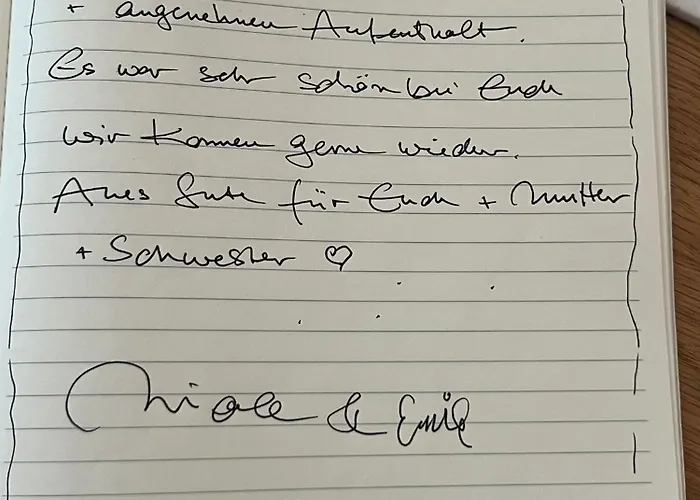 + angenehmen Aufenthalt.
Es war sehr schön bei Euch
wir kommen gerne wieder.
Alles Gute für Euch + Mutter
+ Schwester ♡
Nicole & Emil